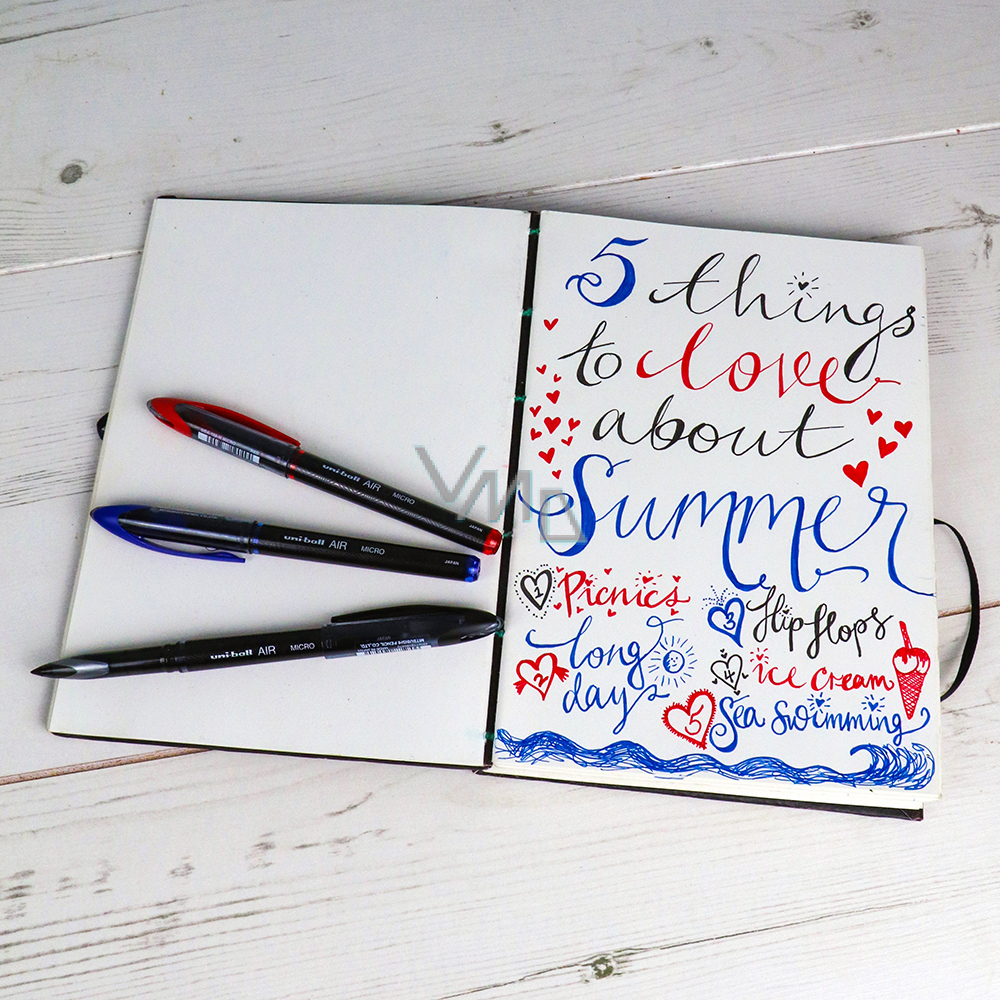 5 things
to love
about
Summer
1 Picnics
2 long
days
3 flip flops
4 ice cream
5 Sea Swimming
uni-ball AIR MICRO
JAPAN
uni-ball AIR MICRO
JAPAN
uni-ball AIR MICRO
MITSUBISHI PENCIL CO.,LTD.
VMD